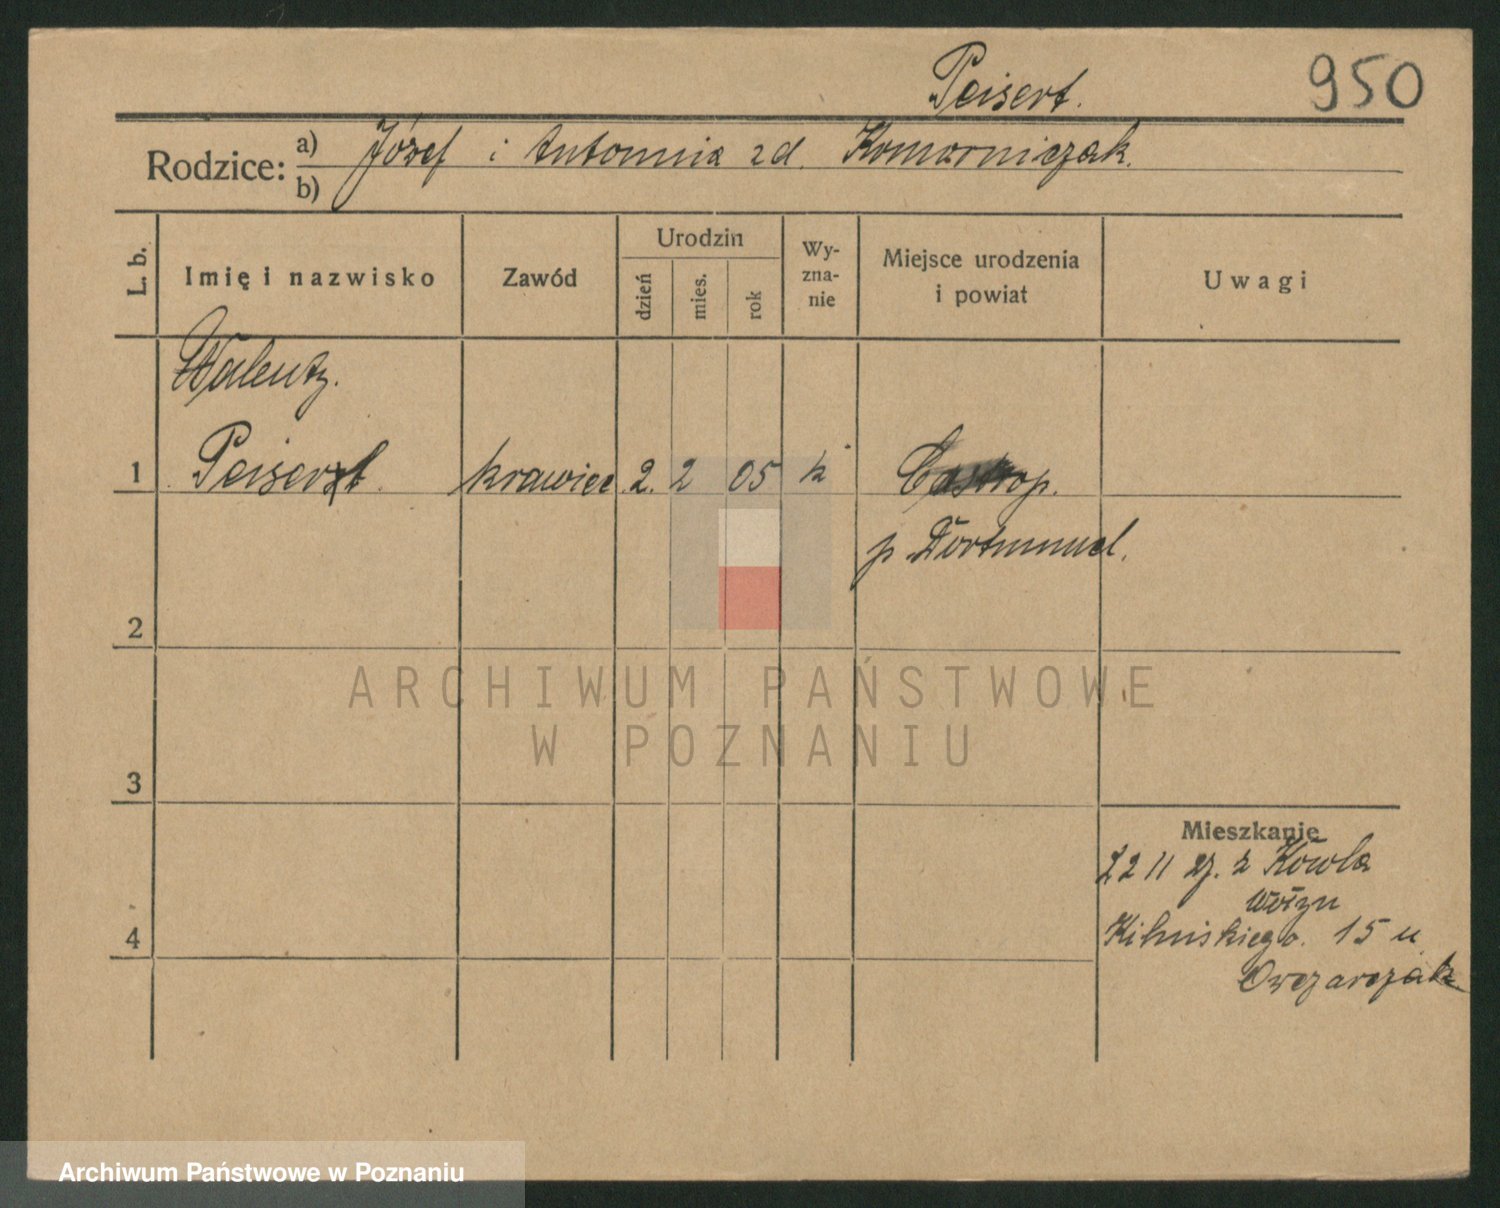 Peisert. 950
Rodzice: a) Józef i Antonnia zd. Komorniczak.
b)
L. b. Imię i nazwisko Zawód Urodzin dzień mies. rok Wy-zna-nie Miejsce urodzenia i powiat Uwagi
Walenty.
1 Peisert krawiec 2. 2 05 k Castrop.
p Dortmund.
2
ARCHIWUM PAŃSTWOWE
W POZNANIU
3
4
Mieszkanie
22 11 z Kowla
Kilińskiego. 15 u
Owczarczak
Archiwum Państwowe w Poznaniu